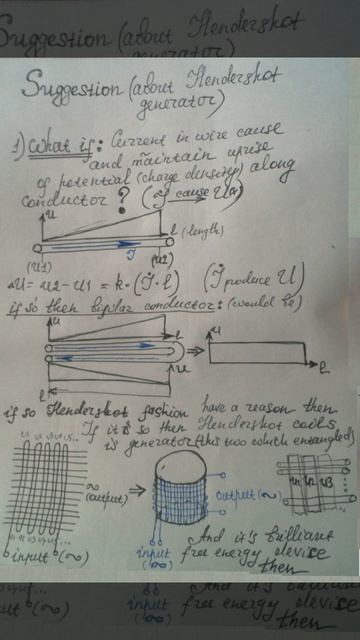 Suggestion (about Hendershot
generator)
Suggestion (about Hendershot
generator)
1) What if: Current in wire cause
and maintain uprise
of potential (charge density) along
conductor? (J cause U)
U
l (length)
J
(U1) (U2)
ΔU = U2 - U1 = k·(J·l) (J produce U)
if so then bipolar conductor: (would be)
U
l
U
l
U
l
if so Hendershot fashion have a reason then
If it is so then Hendershot coils
is generator (this two which entangled)
U1 U2 U3 ...
~ (output)
input (∞)
output (∞)
input (∞)
U1 U2 U3
And it's brilliant
free energy device
then
And it's brilliant
free energy device
then